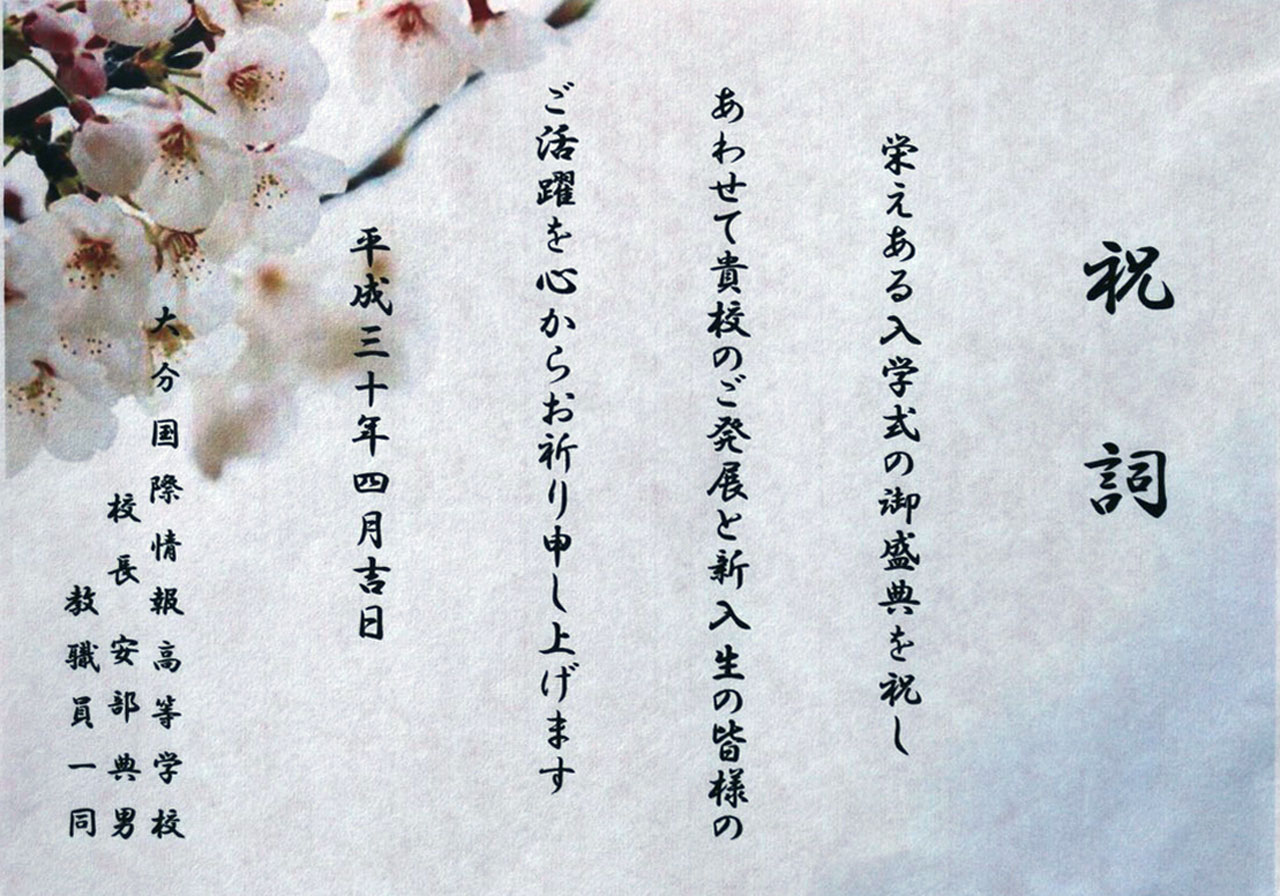 祝詞
栄えある入学式の御盛典を祝し
あわせて貴校のご発展と新入生の皆様の
ご活躍を心からお祈り申し上げます
平成三十年四月吉日
大分国際情報高等学校
校長 安部典男
教職員一同